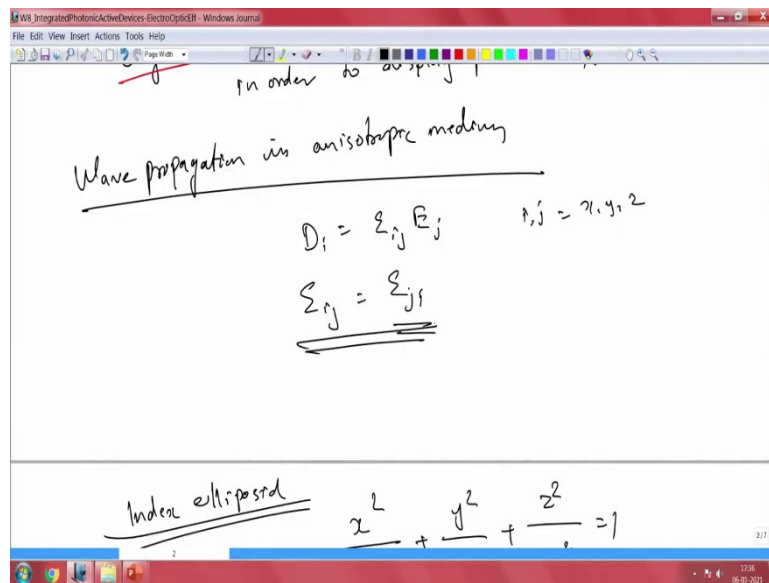 W8_IntegratedPhotonicActiveDevices-ElectroOpticEff - Windows Journal
File Edit View Insert Actions Tools Help
Page Width
in order to
Wave propagation in anisotropic medium
Dᵢ = Ɛᵢⱼ Eⱼ i, j = x, y, z
Ɛᵢⱼ = Ɛⱼᵢ
Index ellipsoid x² + y² + z² = 1
2
2/7
17:36
06-01-2021